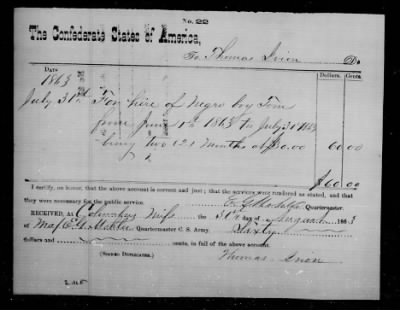 No. 22
The Confederate States of America,
To Thomas Dr.
DATE Dollars. Cents
1863
July 31st For hire of Negro boy Tom
from June 1st 1863 to July 31st 1863
being two (2) months at 30.00 60 00
$60.00
I certify, on honor, that the above account is correct and just; that the services were rendered as stated, and that
they were necessary for the public service. Quartermaster.
RECEIVED, At Columbus Miss. the day of August 1863
of Maj Quartermaster C. S. Army, Sixty
dollars and cents, in full of the above account.
(SIGNED DUPLICATES.) Thomas